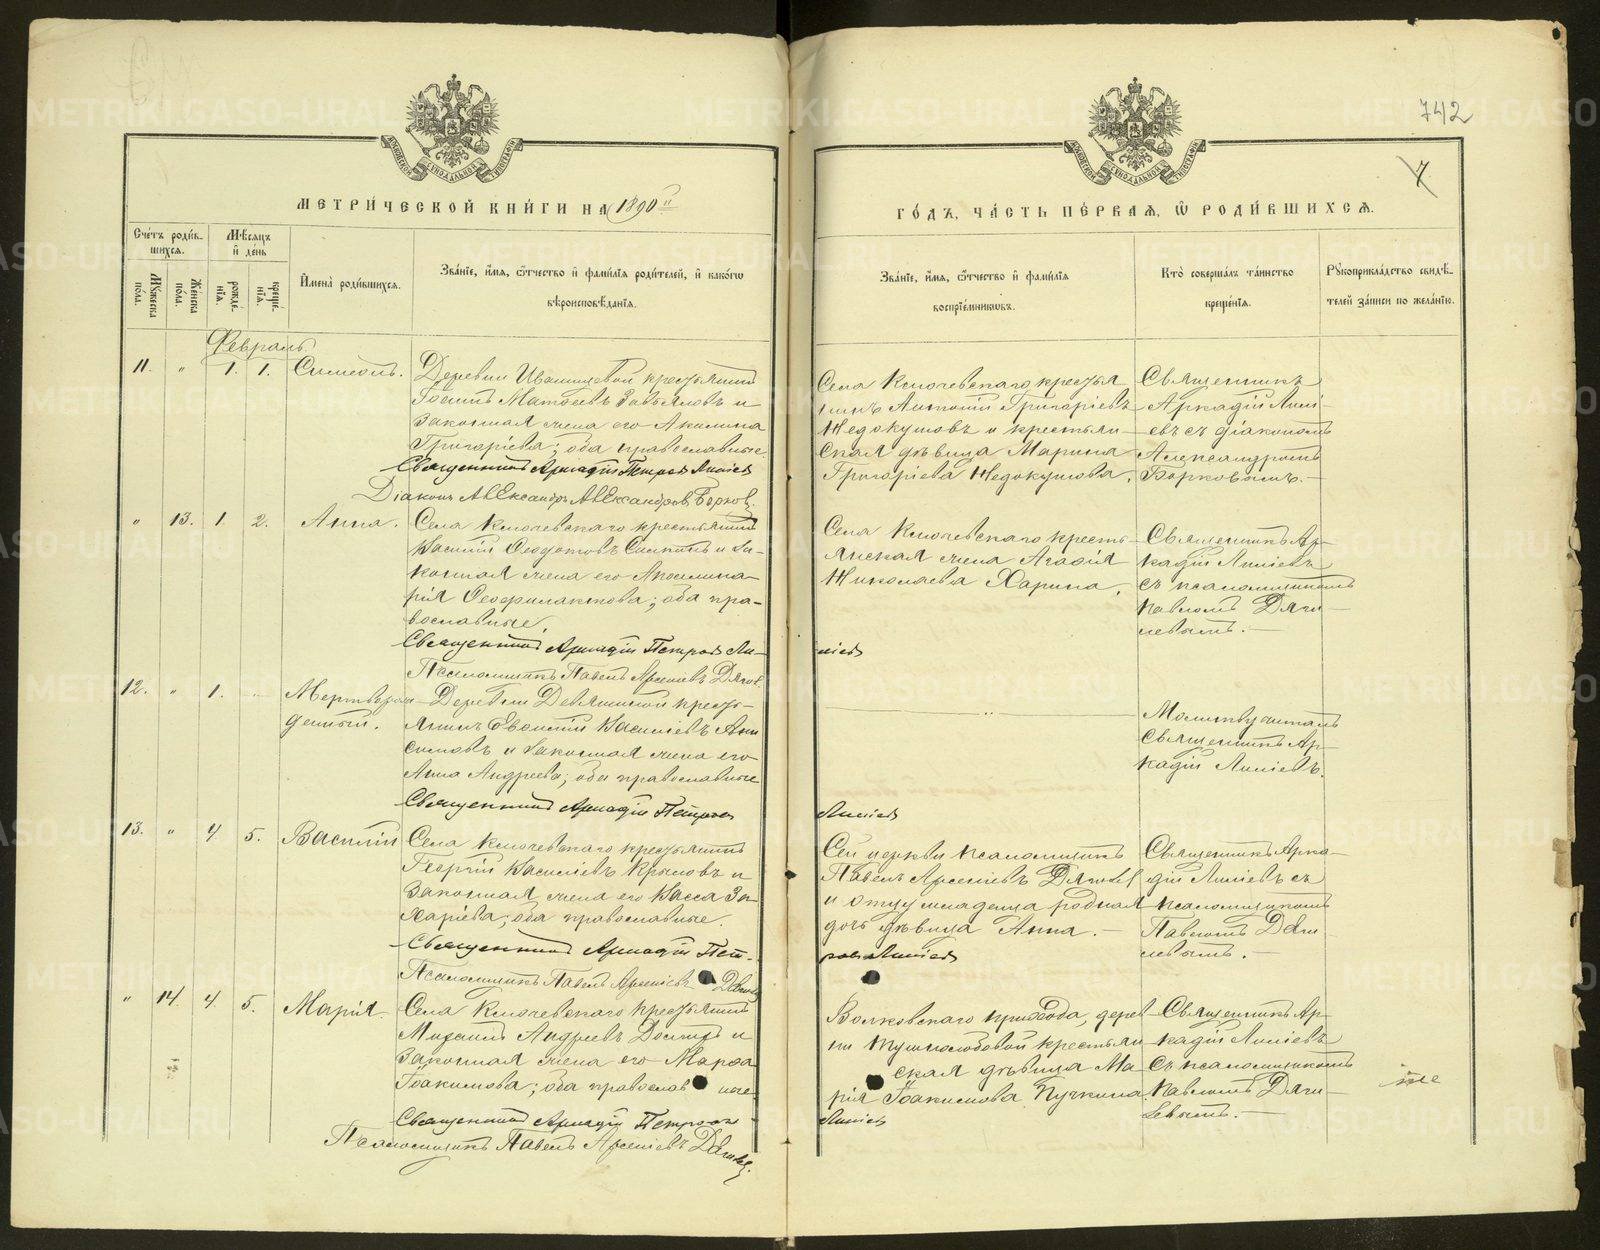 742
7
МЕТРИ́ЧЕСКОЙ КНИ́ГИ НА 1890 й
ГО́ДЪ, ЧА́СТЬ ПЕ́РВАЯ, Ѿ РОДИ́ВШИХСЯ.
Сче́тъ роди́вшихся.
Мѣ́сяцъ и҆ де́нь
Мꙋ́жеска по́ла.
Же́нска по́ла.
рожде́нїя.
креще́нїя.
И҆мена̀ роди́вшихся.
Зва́нїе, и҆́мя, ѻ҆́тчество и҆ фами́лїя роди́телей, и҆ како́гѡ
вѣроисповѣ́данїя.
Зва́нїе, и҆́мя, ѻ҆́тчество и҆ фами́лїя
воспрїе́мникѡвъ.
Кто̀ соверша́лъ та́инство
креще́нїя.
Рꙋкоприкла́дство свидѣ́-
телей за́писи по жела́нїю.
Февраль.
11. " 1. 1. Симеонъ.
Деревни Ивановой крестьянинъ
Іоаннъ Матѳеевъ Завьяловъ и
законная жена его Акилина
Григоріева; оба православные
Священникъ Аркадій Петровъ Линіевъ
Діаконъ Александръ Александровъ Борковъ
Села Ключевскаго крестья
нинъ Антоній Григоріевъ
Недокушовъ и крестьян-
ская дѣвица Марина
Григоріева Недокушова.
Священникъ
Аркадій Лині-
евъ съ діакономъ
Александромъ
Борковымъ.
" 13. 1. 2. Анна.
Села Ключевскаго крестьянинъ
Василій Ѳеодотовъ и за-
конная жена его Аполлина-
рія Ѳеофилактова; оба пра-
вославные.
Священникъ Аркадій Петровъ Ли-
ніевъ
Псаломщикъ Павелъ Арсеніевъ
Села Ключевскаго кресть-
янская жена Агафія
Николаева Харина.
Священникъ Ар-
кадій Линіевъ
съ псаломщикомъ
Павломъ Дяги-
левымъ.
12. " 1. " Мертворож-
денный.
Деревни кресть-
янинъ Евѳимій Василіевъ Ани
симовъ и законная жена его
Анна Андреева; оба православные
Священникъ Аркадій Петровъ
Линіевъ
Молитву читалъ
Священникъ Ар-
кадій Линіевъ.
13. " 4. 5. Василій
Села Ключевскаго крестьянинъ
Георгій Василіевъ Крыловъ и
законная жена его Васса За-
харіева; оба православные.
Священникъ Аркадій Пет-
ровъ Линіевъ
Псаломщикъ Павелъ Арсеніевъ
Сей церкви псаломщикъ
Павелъ Арсеніевъ Дягилевъ
и отцу младенца родная
дочь дѣвица Анна.
Священникъ Арка-
дій Линіевъ съ
псаломщикомъ
Павломъ Дяги-
левымъ.
" 14. 4. 5. Марія.
Села Ключевскаго крестьянинъ
Михаилъ Андреевъ и
законная жена его Марѳа
Іоакимова; оба православ ные
Священникъ Аркадій Петровъ
Линіевъ
Псаломщикъ Павелъ Арсеніевъ
Волковскаго прихода, дерев
ни крестьян
ская дѣвица Ма
рія Іоакимова Пучкина.
Священникъ Ар-
кадій Линіевъ
съ псаломщикомъ
Павломъ Дяги-
левымъ.
METRIKI.GASO-URAL.RU